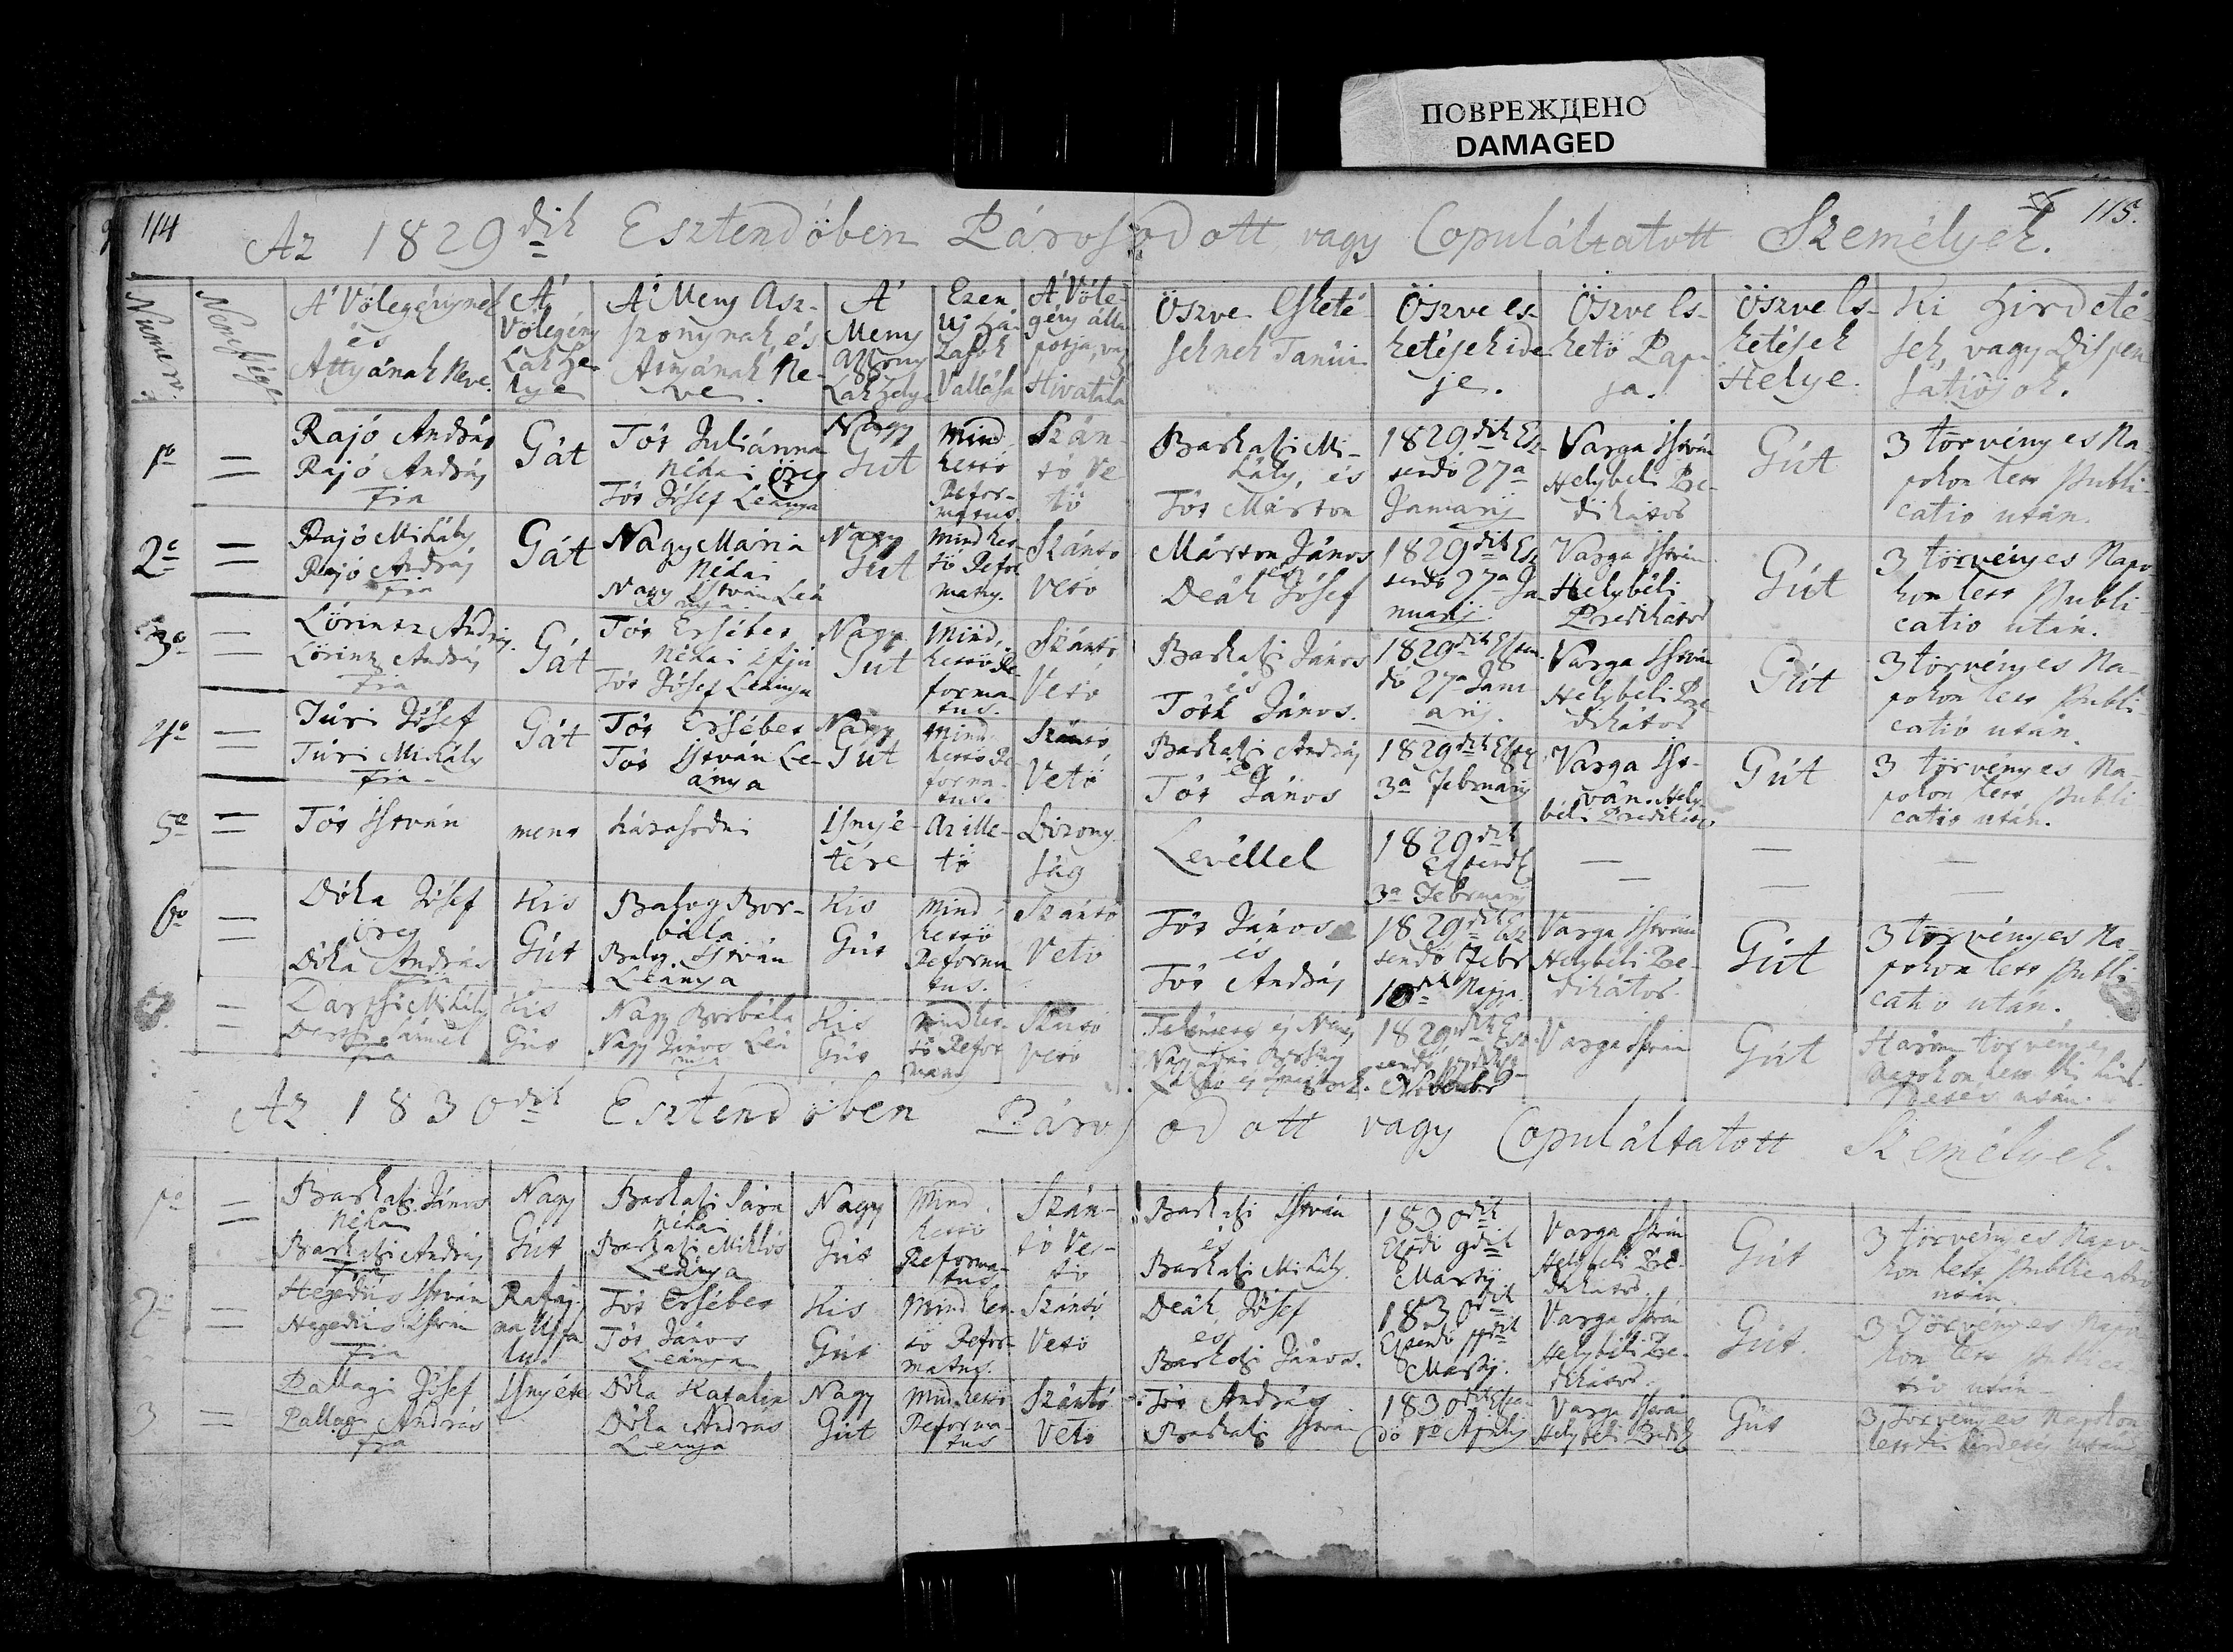 ПОВРЕЖДЕНО
DAMAGED
114
115.
Az 1829dik Esztendőben Párosodott vagy Copuláltatott Személyek.
Numero.
Nemessége
A' Vőlegénynek
és
Attyának Neve.
A'
Vőlegény
Lakhe-
lye
A' Meny Asz-
szonynak, és
Attyának Ne-
ve.
A'
Meny
Aszszony
Lakhelye
Ezen
Uj Há-
zasok
Vallása
A' Vőle-
gény álla-
potja, vagy
Hivatala
Öszve Esketé-
seknek Tanúi
Öszve es-
ketések ide-
je.
Öszve Es-
kető Pap-
ja.
Öszve Es-
ketések
Helye.
Ki Hirdeté-
sek, vagy Dispen-
satiójok.
1o
Rajó András
Rajó András
Fia
Gát
Tót Juliánna
Néhai Öreg
Tót Jósef Leánya
Nagy
Gut
Mind
kettő
Refor-
matus.
Szán-
tó Ve
tő
Barkatzi Mi-
hály, és
Tót Márton
1829dik Esz-
tendő 27a
Januarij
Varga István
Helybeli Pre-
dikátor
Gút
3 törvényes Na-
pokon lett Publi-
catio után.
2o
Rajó Mihály
Rajó András
fia
Gát
Nagy Mária
Néhai
Nagy István Leá
nya
Nagy
Gút
Mindket-
tő Refor
matus.
Szántó
Vető
Márton János
és
Deák Jósef
1829dik Esz
tendő 27a Ja-
nuarij
Varga István
Helybéli
Predikátor
Gút
3 törvényes Napo
kon lett Publi-
catio után.
3o
Lőrintz András
Lőrintz András
Fia
Gát
Tót Ersébet
Néhai Ifjú
Tót Jósef Leánya
Nagy
Gút
Mind
kettő Re-
forma-
tus.
Szántó
Vető
Barkatzi János
és
Tóth János.
1829dik Eszten
dő 27a Janu
arij.
Varga István
Helybeli Pre
dikátor
Gút
3 törvényes Na-
pokon lett Publi-
catió után.
4o
Túri Jósef
Túri Mihály
Fia
Gát
Tót Ersébet
Tót István Le-
ánya
Nagy
Gút
Mind
kettő Re-
forma-
tus.
Szántó
Vető
Barkatzi András
és
Tót János
1829dik Eszt
3a Februarij
Varga Ist-
ván Hely
béli Predikátor
Gút
3 törvényes Na-
pokon lett Publi
catio után.
5o
Tót István
ment házasodni
Isnyé-
tére
az ille-
tő
Bizony
ság
Levéllel
1829dik
Esztendő
3a Februarij
6o
Dóka Jósef
Öreg
Dóka András
fia
Kis
Gút
Balog Bor-
bála
Balog István
Leánya
Kis
Gút
Mind
kettő
Reforma
tus.
Szántó
Vető
Tót János
és
Tót András
1829dik Esz
tendő Febr
10dik Napja
Varga István
Helybéli Pre-
dikátor.
Gút
3 törvényes Na-
pokon lett Publi
catio után.
Mihály
Sámuel
fia
Kis
Gút
Nagy Borbála
Nagy János Leá
nya
Kis
Gút
Mindket-
tő Refor
matus
Szántó
Vető
1829dik Esz-
tendő
Varga István
Gút
Három törvényes
napokon lett ki hird-
etés után.
Az 1830dik Esztendőben Párosodott vagy Copuláltatott Személyek.
1o
Barkatzi János
Néhai
Barkatzi András
fia
Nagy
Gút
Barkatzi Sára
Néhai
Barkatzi Miklós
Leánya
Nagy
Gút
Mind
kettő
Reforma-
tus
Szán-
tó Ve-
tő
Barkatzi István
és
Barkatzi Mihály.
1830dik
9dik
Martij
Varga István
Helybeli Pre-
dikátor.
Gút
3 törvényes Napo-
kon lett Publicatio
után.
2o
Hegedűs István
Hegedűs István
Fia
Rafaj-
na Ujfa
lu.
Tót Ersébet
Tót János
Leánya
Kis
Gút
Mind ket-
tő Refor-
matus.
Szántó
Vető
Deák Jósef
és
Barkatzi János.
1830dik
Martij.
Varga István
Helybéli Pre-
dikátor.
Gút.
3 Törvényes Napo
kon lett Publica
tió után
3
Pallagi Jósef
Pallagi András
fia
Isnyéte
Dóka Katalin
Dóka András
Leánya
Nagy
Gút
Mindkettő
Reforma-
tus
Szántó
Vető
Tót András
Barkatzi István
1830dik Eszten
dő 1o Aprilis
Varga István
Helybéli Predik
Gút
3 Törvényes Napokon
lett ki hirdetés után